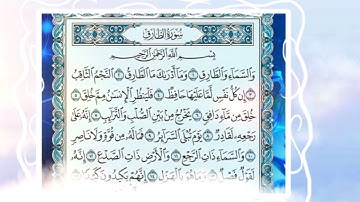 سُورَةُ الطَّارِقِ
بِسْمِ اللَّهِ الرَّحْمَٰنِ الرَّحِيمِ
وَالسَّمَاءِ وَالطَّارِقِ ١ وَمَا أَدْرَاكَ مَا الطَّارِقُ ٢ النَّجْمُ الثَّاقِبُ
٣ إِن كُلُّ نَفْسٍ لَّمَّا عَلَيْهَا حَافِظٌ ٤ فَلْيَنظُرِ الْإِنسَانُ مِمَّ خُلِقَ ٥
خُلِقَ مِن مَّاءٍ دَافِقٍ ٦ يَخْرُجُ مِن بَيْنِ الصُّلْبِ وَالتَّرَائِبِ ٧ إِنَّهُ عَلَىٰ
رَجْعِهِ لَقَادِرٌ ٨ يَوْمَ تُبْلَى السَّرَائِرُ ٩ فَمَا لَهُ مِن قُوَّةٍ وَلَا نَاصِرٍ
١٠ وَالسَّمَاءِ ذَاتِ الرَّجْعِ ١١ وَالْأَرْضِ ذَاتِ الصَّدْعِ ١٢ إِنَّهُ
لَقَوْلٌ فَصْلٌ ١٣ وَمَا هُوَ بِالْهَزْلِ ١٤ إِنَّهُمْ يَكِيدُونَ كَيْدًا ١٥